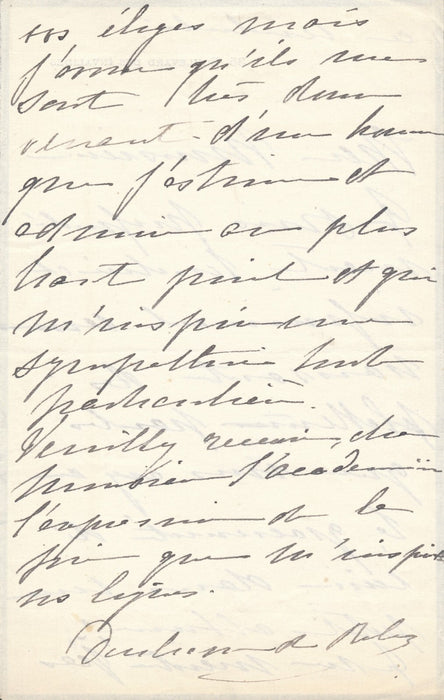 vos éloges mais
j'avoue qu'ils me
sont très doux
venant d'un homme
que j'estime et
admire au plus
haut point et qui
m'inspire une
sympathie toute
particulière.
Veuillez recevoir, cher
Monsieur l'académicien
l'expression de la
joie que m'inspirent
vos lignes.
Duchesse de